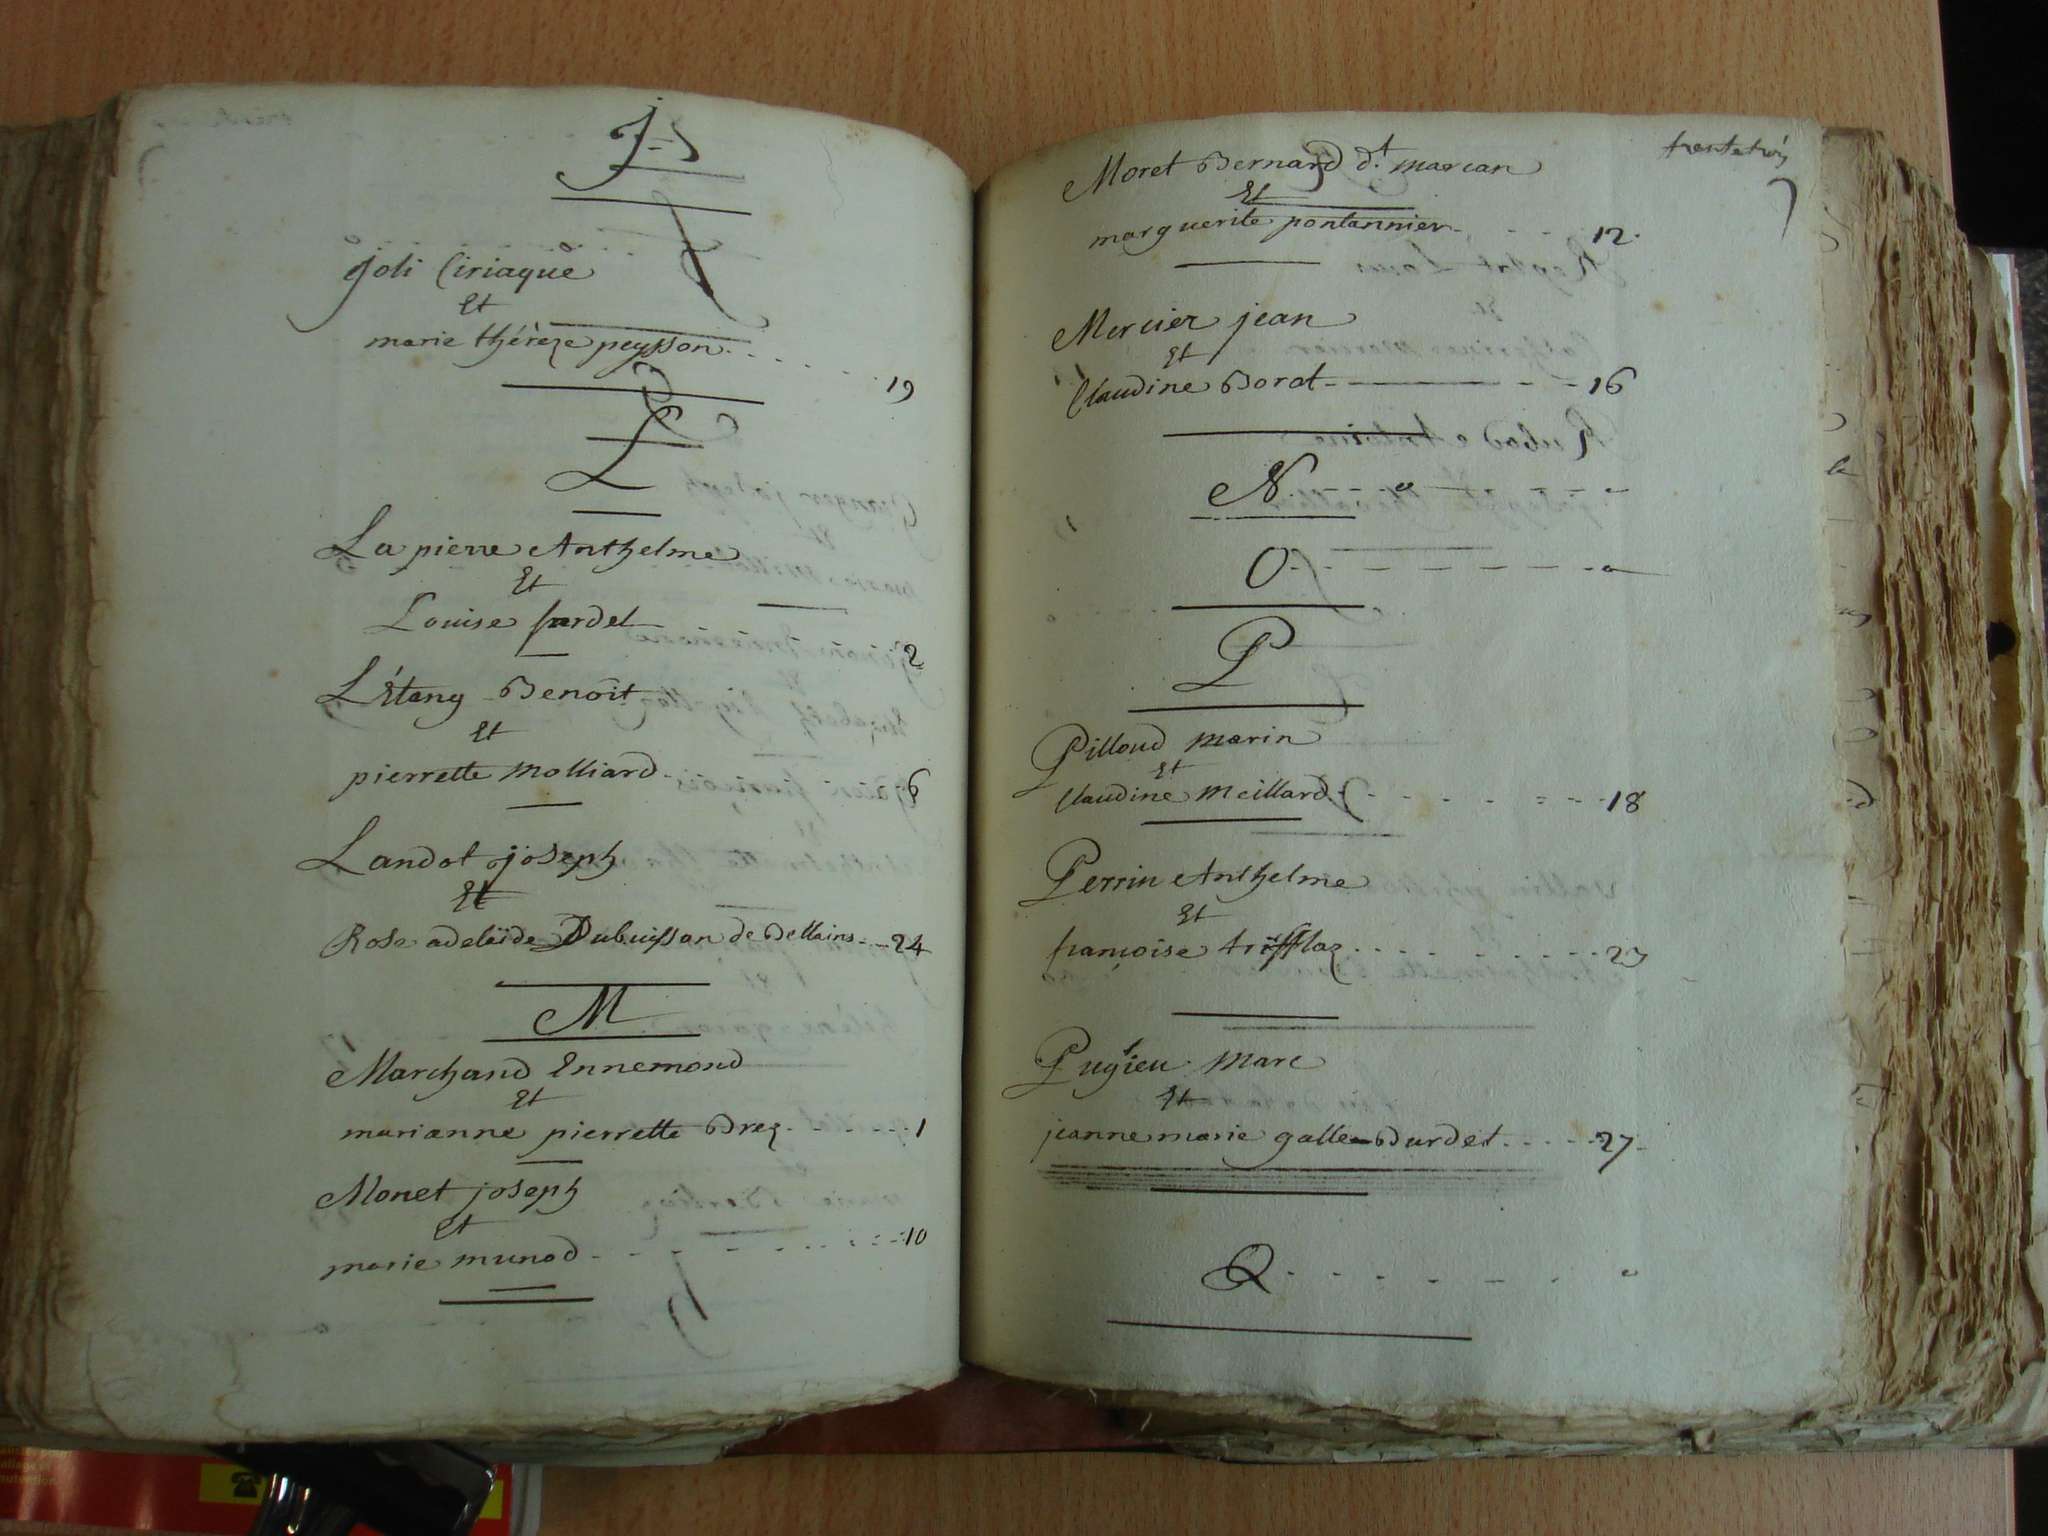 J
joli Ciriaque
Et
marie thérèze peysson 19
L
La pierre Anthelme
Et
Louise fardel 2
L'Étang Benoît
Et
pierrette Molliard 6
Landot joseph
Et
Rose adelaïde Dubuisson de Dellains 24
M
Marchand Ennemond
Et
marianne pierrette Brez 1
Monet joseph
Et
marie munod 10
Moret Bernard d.t marcan
Et
marguerite pontannier 12
Mercier jean
Et
Claudine Borat 16
N
O
P
Pilloud marin
Et
Claudine Meillard 18
Perrin Anthelme
Et
françoise triffflaz 23
Pugieu Marc
Et
jeanne marie galle Burdet 27
Q